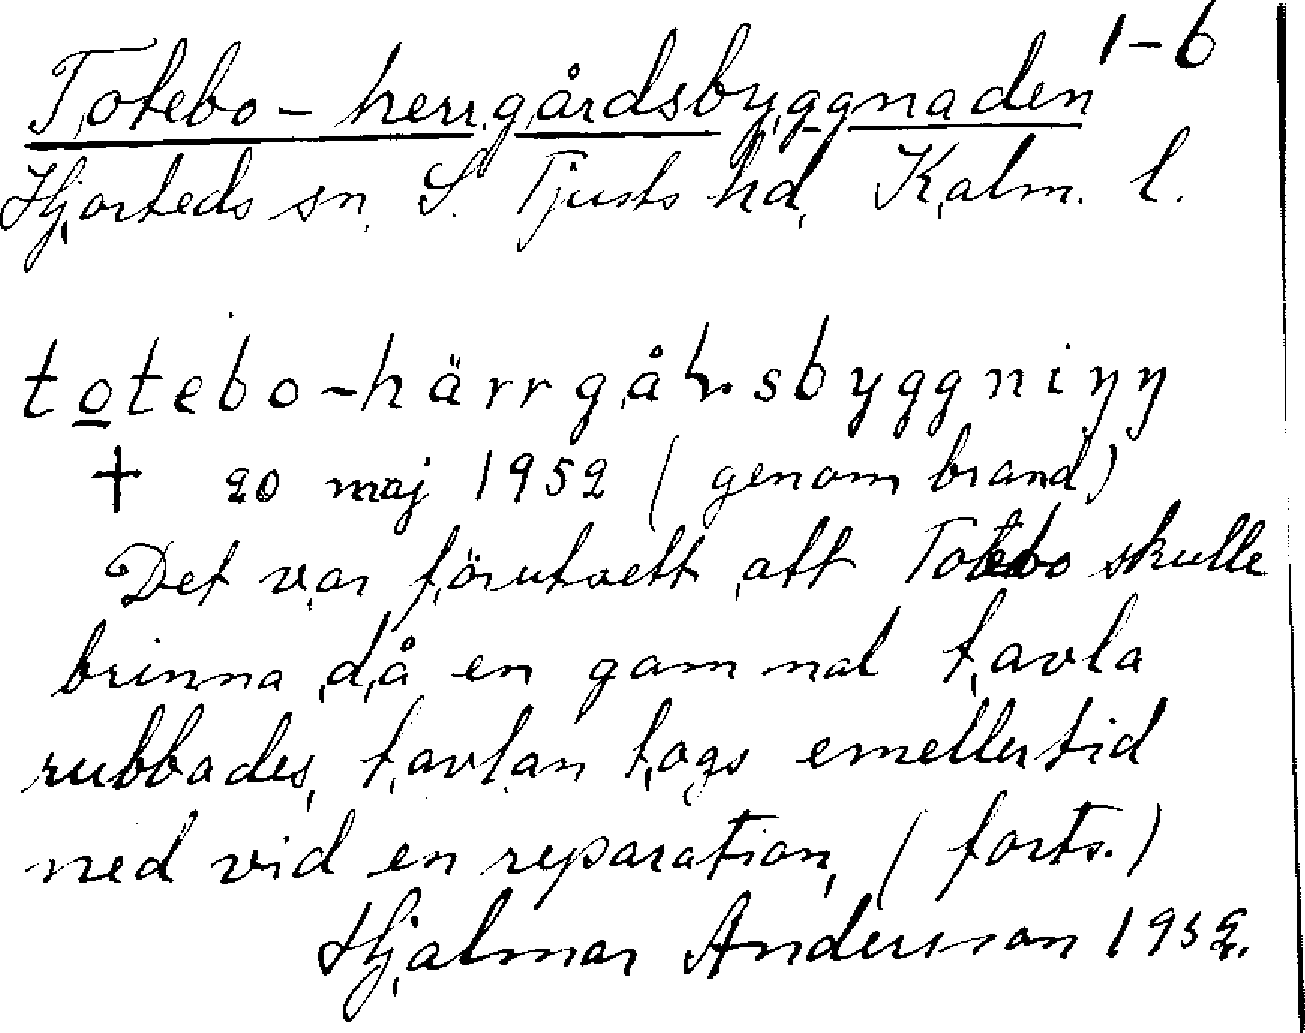 1-6
Totebo-herrgårdsbyggnaden
Hjorteds sn, S. Tjusts hd, Kalm. l.
totebo-härrgåʰ.sbyggniŋŋ
† 20 maj 1952 (genom brand)
Det var förutsett att Totebo skulle
brinna då en gammal tavla
rubbades, tavlan togs emellertid
ned vid en reparation, (forts.)
Hjalmar Andersson 1952.